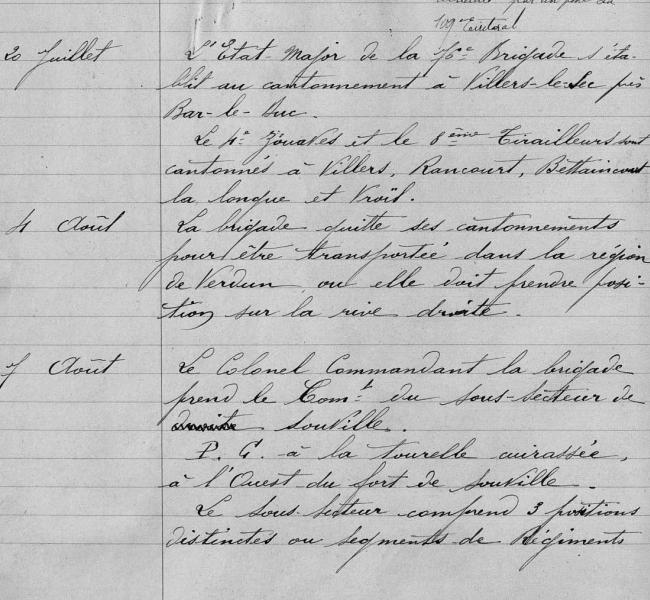 par un
109e Territorial
20 Juillet L'Etat-Major de la 76e Brigade s'éta-
blit au cantonnement à Villers-le-Sec près
Bar-le-Duc.
Le 4e Zouaves et le 8ème Tirailleurs sont
cantonnés à Villers, Rancourt, Bettaincourt
la longue et Vroïl.
4 Août La brigade quitte ses cantonnements
pour être transportée dans la région
de Verdun ou elle doit prendre posi-
tion sur la rive droite.
7 Août Le Colonel Commandant la brigade
prend le Comt du sous-secteur de
Souville.
P. C. à la tourelle cuirassée,
à l'Ouest du fort de Souville.
Le sous-secteur comprend 3 positions
distinctes ou segments de Régiments